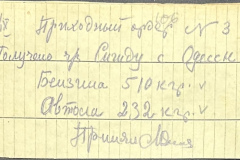 Приходный ордер № 3
Получено гр. с Одессы
Бензина 510 кгр.
Автола 232 кгр.
Принял